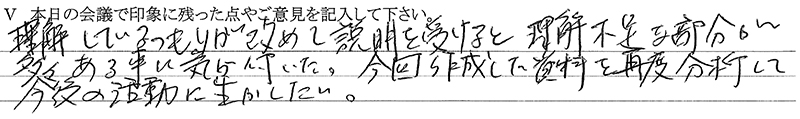 V 本日の会議で印象に残った点やご意見を記入して下さい
理解しているつもりが改めて説明を受けると理解不足な部分が
多々ある事に気が付いた。今回作成した資料を再度分析して
今後の活動に生かしたい。